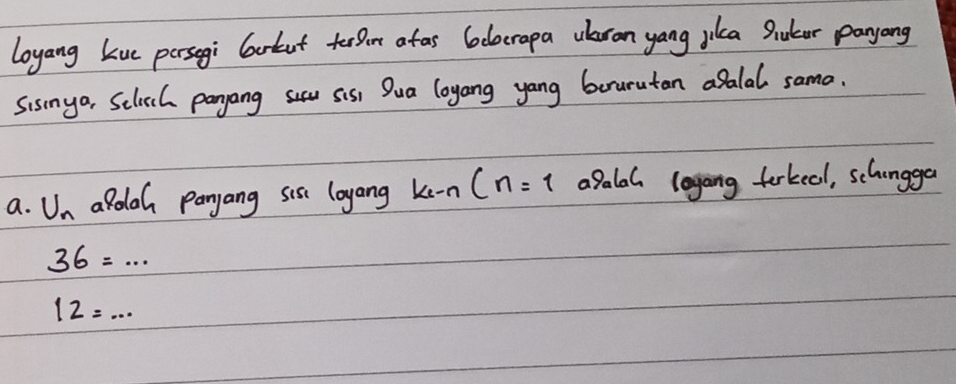 Loyang kue persegi berikut terdiri atas beberapa ukuran yang jika diukur panjang
sisinya, selisih panjang sisi dua loyang yang berurutan adalah sama.
a. Un adalah panjang sisi loyang ke-n (n = 1 adalah loyang terkecil, sehingga
36 = ...
12 = ...